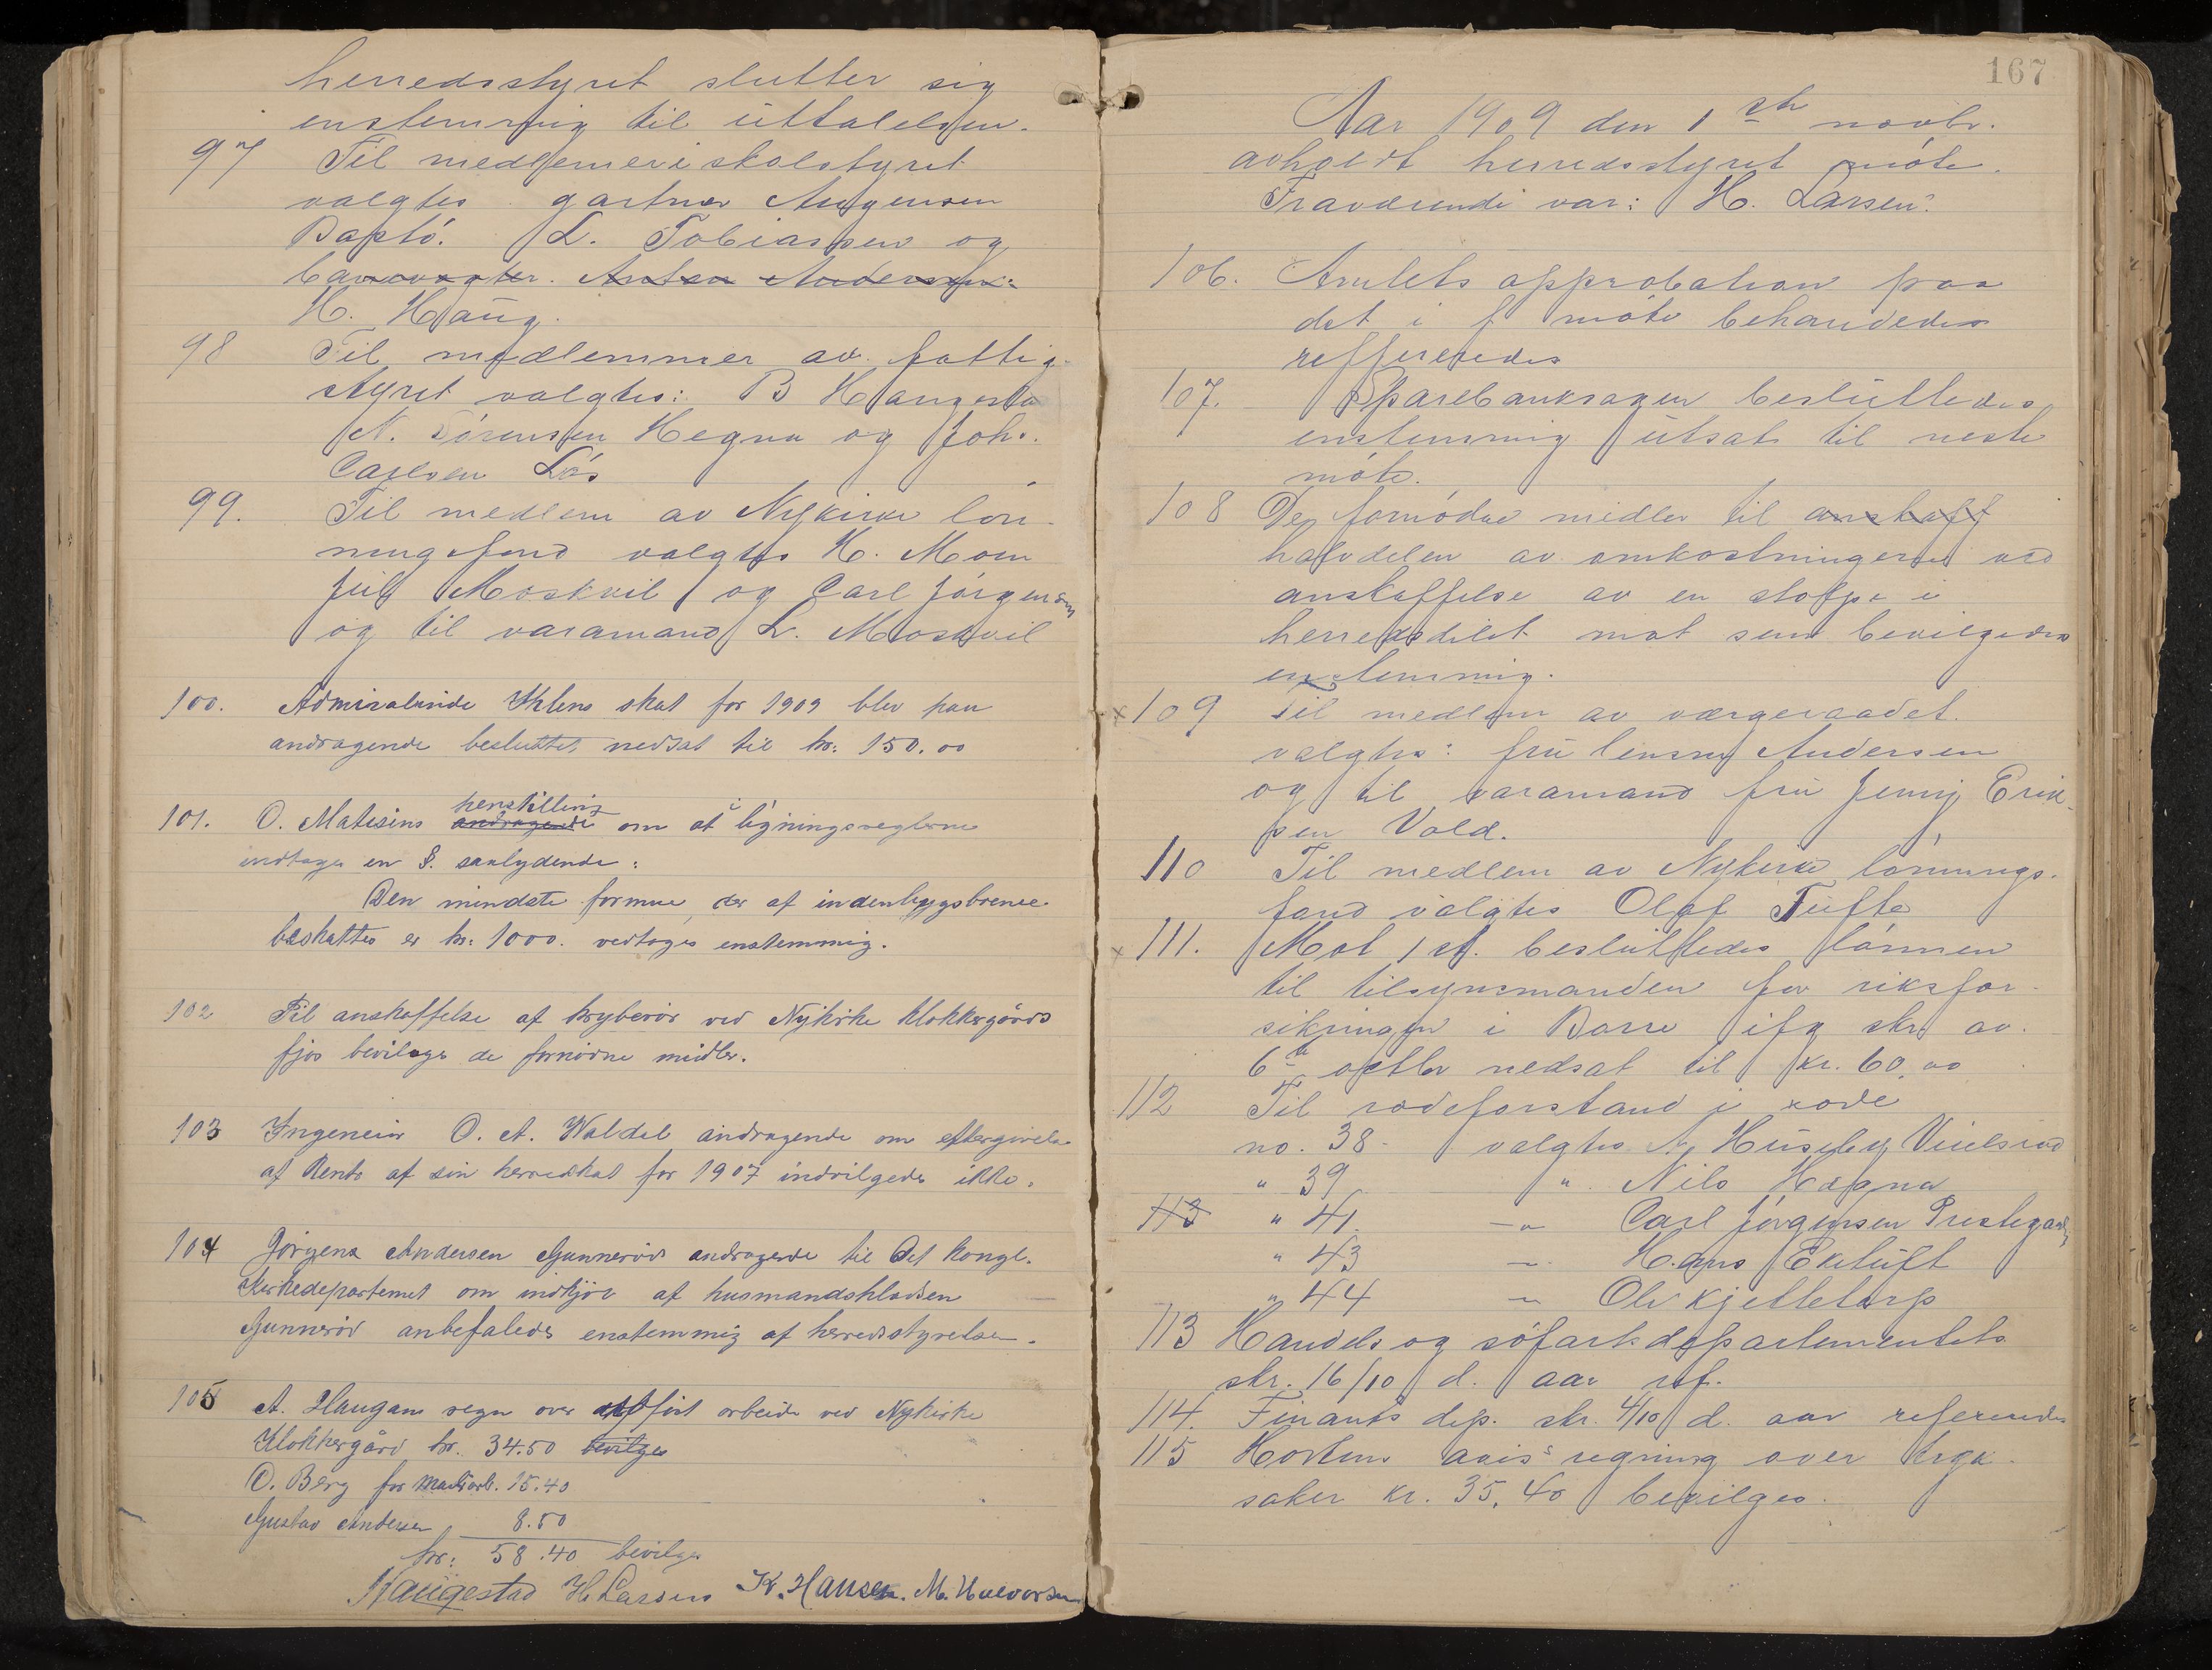 herredsstyret slutter sig
enstemmig til uttalelsen.
97 Til medlemer i skolstyret
valgtes gartner Augensen
Bastö. L. Tobiassen og
banevogter. Anton Andersen:
H. Haug.
98 Til medlemmer av fattig-
styret valgtes: B Haugestad
N. Sörensen Hegna og Johs.
Carlsen Lös
99. Til medlem av Nykirke lön-
ningsfond valgtes K. Moen
Jul Moskvil og Carl Jörgensen
og til varamand L. Moskvil
100. Admiralinde Ihlens skat for 1909 blev paa
andragende besluttet nedsat til kr: 150.00
101. O. Matisens andragende henstilling om at i ligningsreglerne
indtages en §. saalydende:
Den mindste formue, der af indenbygsboende
beskattes er kr: 1000. vedtoges enstemmig.
102 Til anskaffelse af kryberör ved Nykirke klokkergårds
fjös bevilges de fornödne midler.
103 Ingeneiör O. A. Waldel andragende om eftergivelse
af Rente af sin herredskat for 1907 indvilgedes ikke.
104 Jörgens Andersen Gunneröds andragende til Det kongl.
Kirkedepartemet om indkjöb af husmandspladsen
Gunneröd anbefaledes enstemmig af herredsstyrelsen.
105 A. Haugans regn over utfört arbeide ved Nykirke
Klokkergård kr. 34.50 bevilges
O. Berg for markarb. 15.40
Gustav Andersen 8.50
kr: 58.40 bevilges
Haugestad H. Larsen K. Hansen. M. Halvorsen
167
Aar 1909 den 1ste novbr.
avholdt herredsstyret möte.
Fraværende var: H. Larsen.
106. Amtets approbation paa
det i f möte behandedes
reffereredes
107. Sparebanksagen besluttedes
enstemmig utsat til neste
möte.
108 De fornödne midler til anskaff
halvdelen av omkostningerne ved
anskaffelse av en stolpe i
herredsdelet mot sem bevilgedes
enstemmig.
x 109 Til medlem av værgeraadet.
valgtes: fru Andersen
og til varamand fru Jenny Erik-
sen Vold.
110 Til medlem av Nykirke lönnings-
fond valgtes Olaf Tufte
x 111. Mot 1 st. besluttedes lönnen
til tilsynsmanden for riksfor-
sikringen i Borre ifg skr. av
6te octbr nedsat til kr. 60.00
112 Til rodeforstand i rode
no. 38 - valgtes A. Huseby Viulsrød
" 39 " Nils Hægna
113 " 41. — " Carl Jörgensen Prestegard
" 43 — Hans Eketuft
" 44 — Ole Kjelletorp
113 Handels og söfartsdepartementets
skr. 16/10 d. aar ref.
114. Finants dep. skr. 4/10 d. aar refereredes
115 Hortens avis's regning over tryk-
saker kr. 35,40 bevilges.